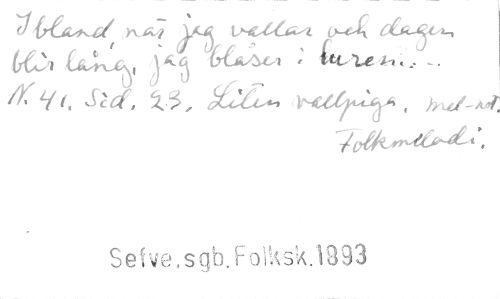 Ibland, när jag vallar och dagen
blir lång, jag blåser i luren....
N. 41. Sid. 23. Liten vallpiga. mel-not.
Folkmelodi.
Sefve.sgb.Folksk.1893